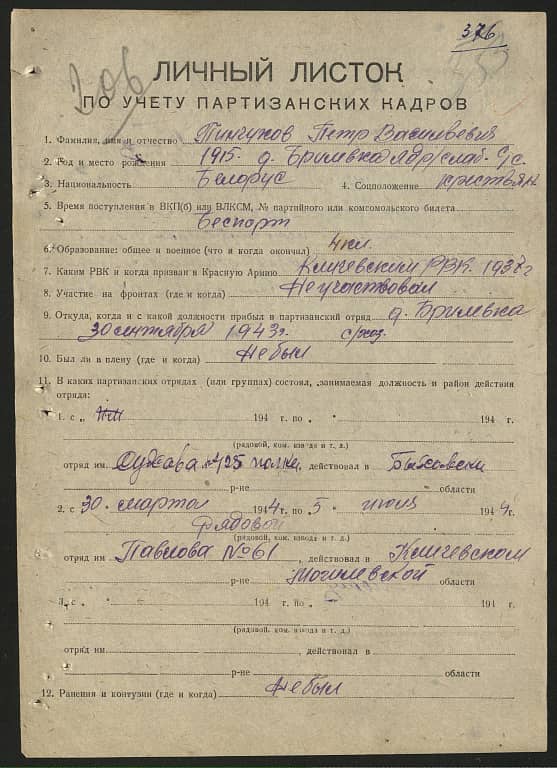 376
ЛИЧНЫЙ ЛИСТОК
ПО УЧЕТУ ПАРТИЗАНСКИХ КАДРОВ
1. Фамилия, имя и отчество Пинчуков Петр Васильевич
2. Год и место рождения 1915. д. Бримвка С/с.
3. Национальность Белорус 4. Соцположение крестьян
5. Время поступления в ВКП(б) или ВЛКСМ, № партийного или комсомольского билета
Беспарт
6. Образование: общее и военное (что и когда окончил) 4 кл.
7. Каким РВК и когда призван в Красную Армию Кличевским РВК. 1937 г
8. Участие на фронтах (где и когда) Не участвовал
9. Откуда, когда и с какой должности прибыл в партизанский отряд д. Бримвка
30 сентября 1943 г.
10. Был ли в плену (где и когда) не был
11. В каких партизанских отрядах (или группах) состоял, занимаемая должность и район действия
отряда:
1. с „ " 194 г. по „ " 194 г.
(рядовой, ком. взвода и т. д.)
отряд им. полка, действовал в
р-не области
2. с „30. марта 1944 г. по „5. июля 1944 г.
рядовой
(рядовой, ком. взвода и т. д.)
отряд им. Павлова № 61, действовал в Кличевском
р-не Могилевской области
3. с „ " 194 г. по „ " 194 г.
(рядовой, ком. взвода и т. д.)
отряд им. действовал в
р-не области
12. Ранения и контузии (где и когда) не был